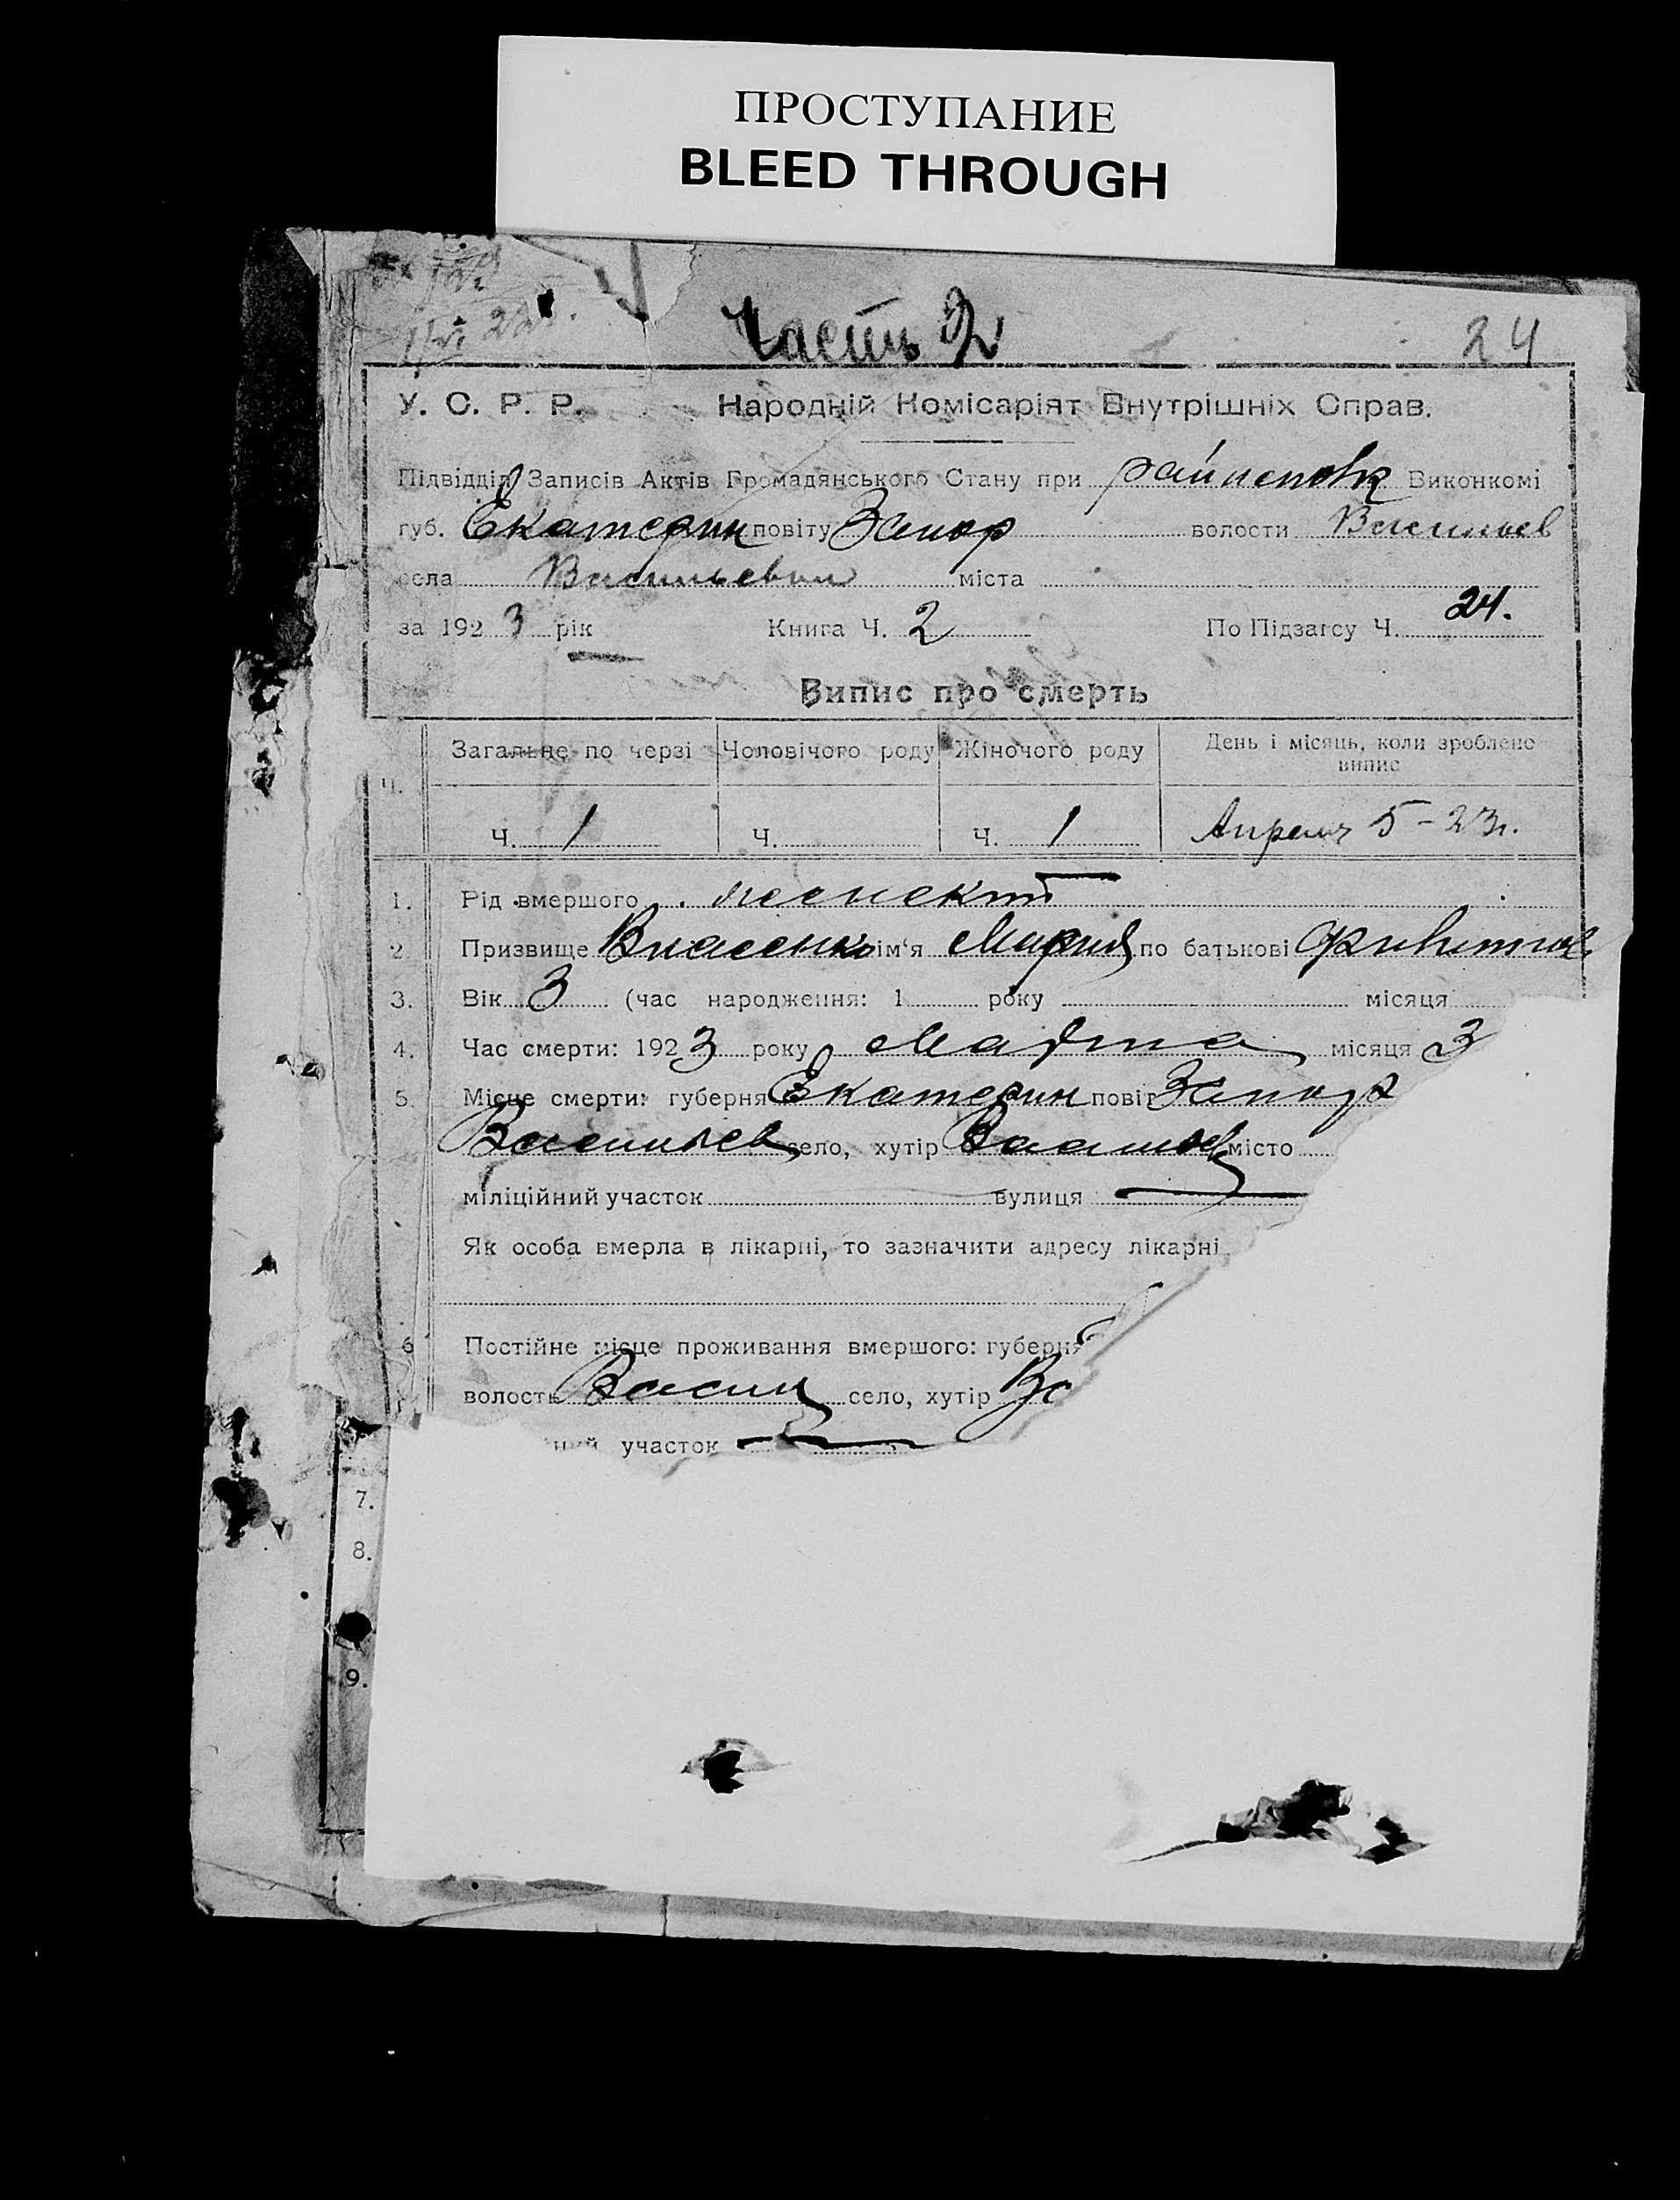 ПРОСТУПАНИЕ
BLEED THROUGH
Часть 2
24
У. С. Р. Р. Народній Комісаріят Внутрішніх Справ.
Підвідділ Записів Актів Громадянського Стану при Виконкомі
губ. Екатерин повіту Запор волости Васильев
села Васильевки міста
за 1923 рік Книга Ч. 2 По Підзагсу Ч. 24.
Випис про смерть
Ч. Загальне по черзі Чоловічого роду Жіночого роду День і місяць, коли зроблено випис
Ч. 1 Ч. Ч. 1 Апреля 5-23г.
1. Рід вмершого
2. Призвище Власенко ім'я Мария по батькові
3. Вік 3 (час народження: 1 року місяця
4. Час смерти: 1923 року Марта місяця 3
5. Місце смерти: губерня Екатерин повіт Запор
Васильев село, хутір Васильев місто
міліційний участок вулиця
Як особа вмерла в лікарні, то зазначити адресу лікарні
6 Постійне місце проживання вмершого: губерня
волость Васил село, хутір Ва
ний участок
7.
8.
9.